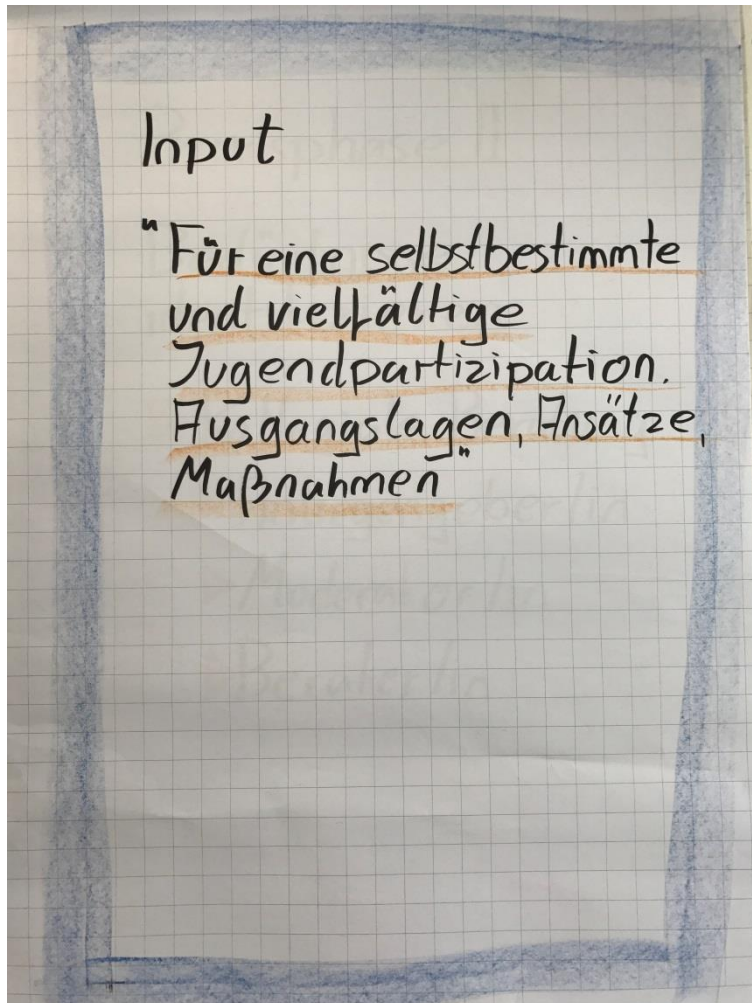 Input
"Für eine selbstbestimmte
und vielfältige
Jugendpartizipation.
Ausgangslagen, Ansätze,
Maßnahmen"